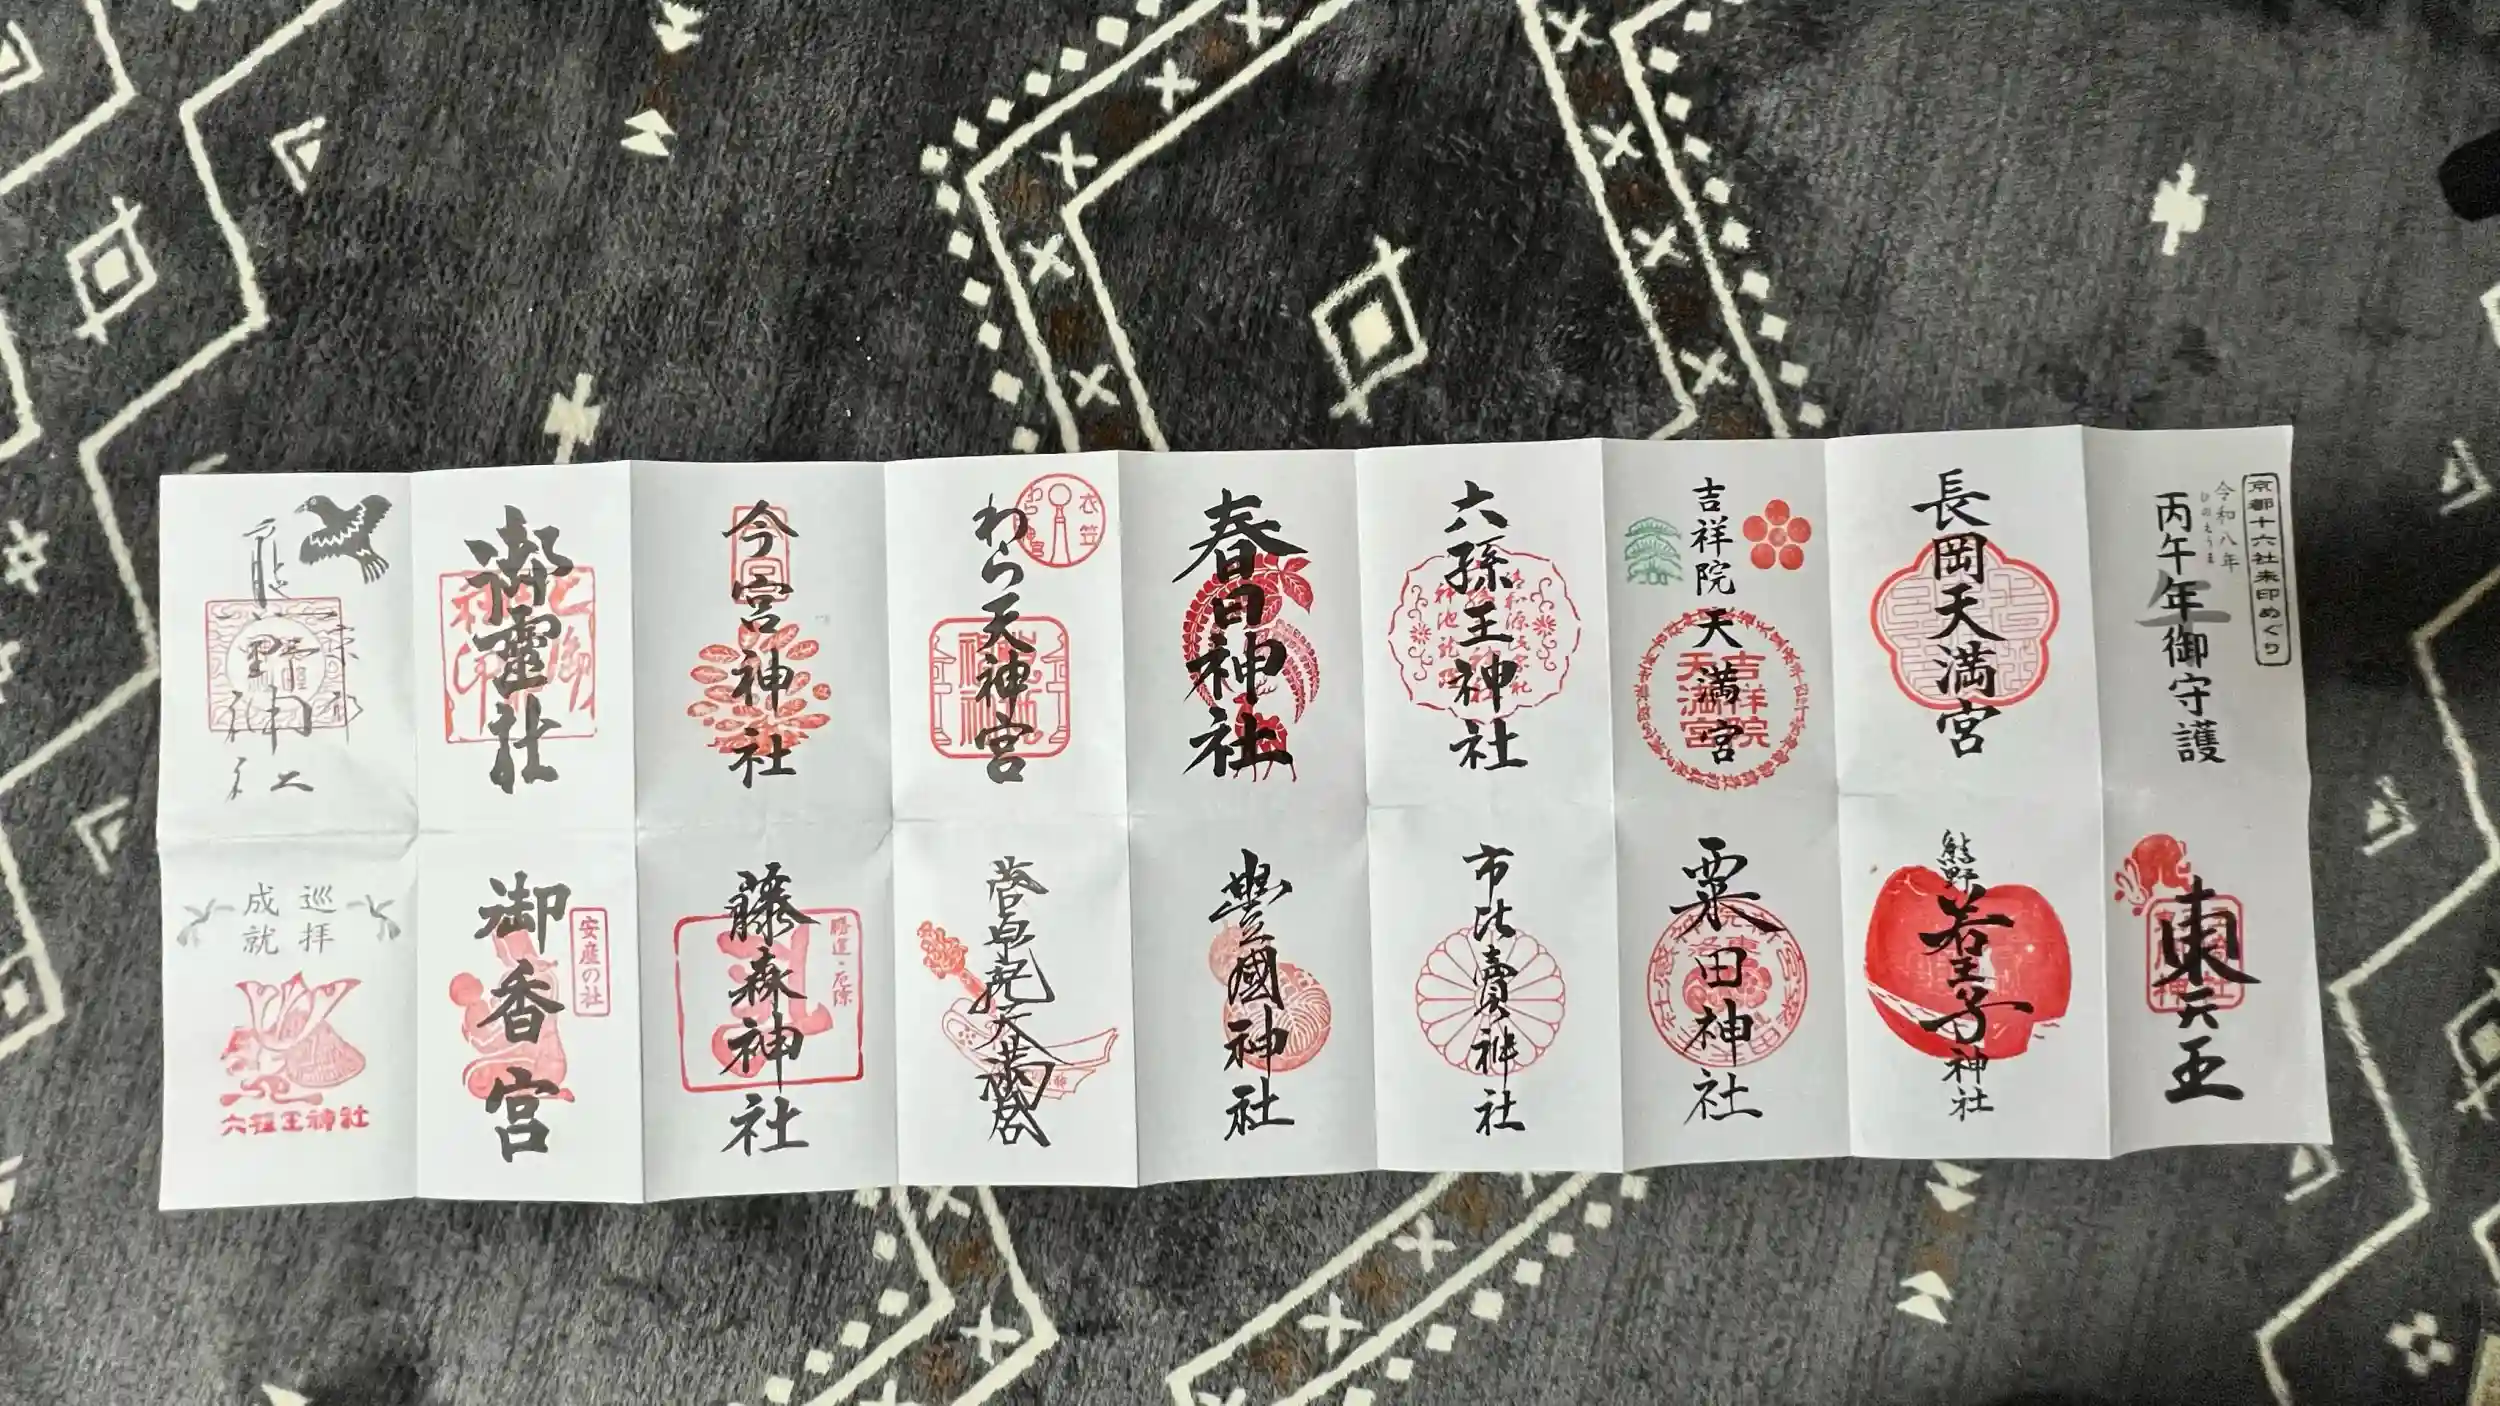 京都十六社朱印めぐり
令和八年
ひのえうま
丙午年御守護
長岡天満宮
吉祥院天満宮
吉祥院
天満宮
六孫王神社
春日神社
衣笠
わら天神宮
今宮神社
御靈社
熊野神社
東天王
熊野若王子神社
粟田神社
市比賣神社
豐國神社
菅原院天満宮
藤森神社
勝運・厄除
御香宮
安産の社
巡拝
成就
六孫王神社